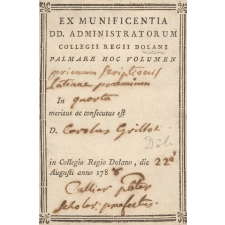 EX MUNIFICENTIA
DD. ADMINISTRATORUM
COLLEGII REGII DOLANI
PALMARE HOC VOLUMEN
primum scriptionis
Latinae praemium
In quarta
meritus ac consecutus est
D. Carolus Grillot
in Collegio Regio Dolano, die 22a
Augusti anno 178
scholar. praefectus